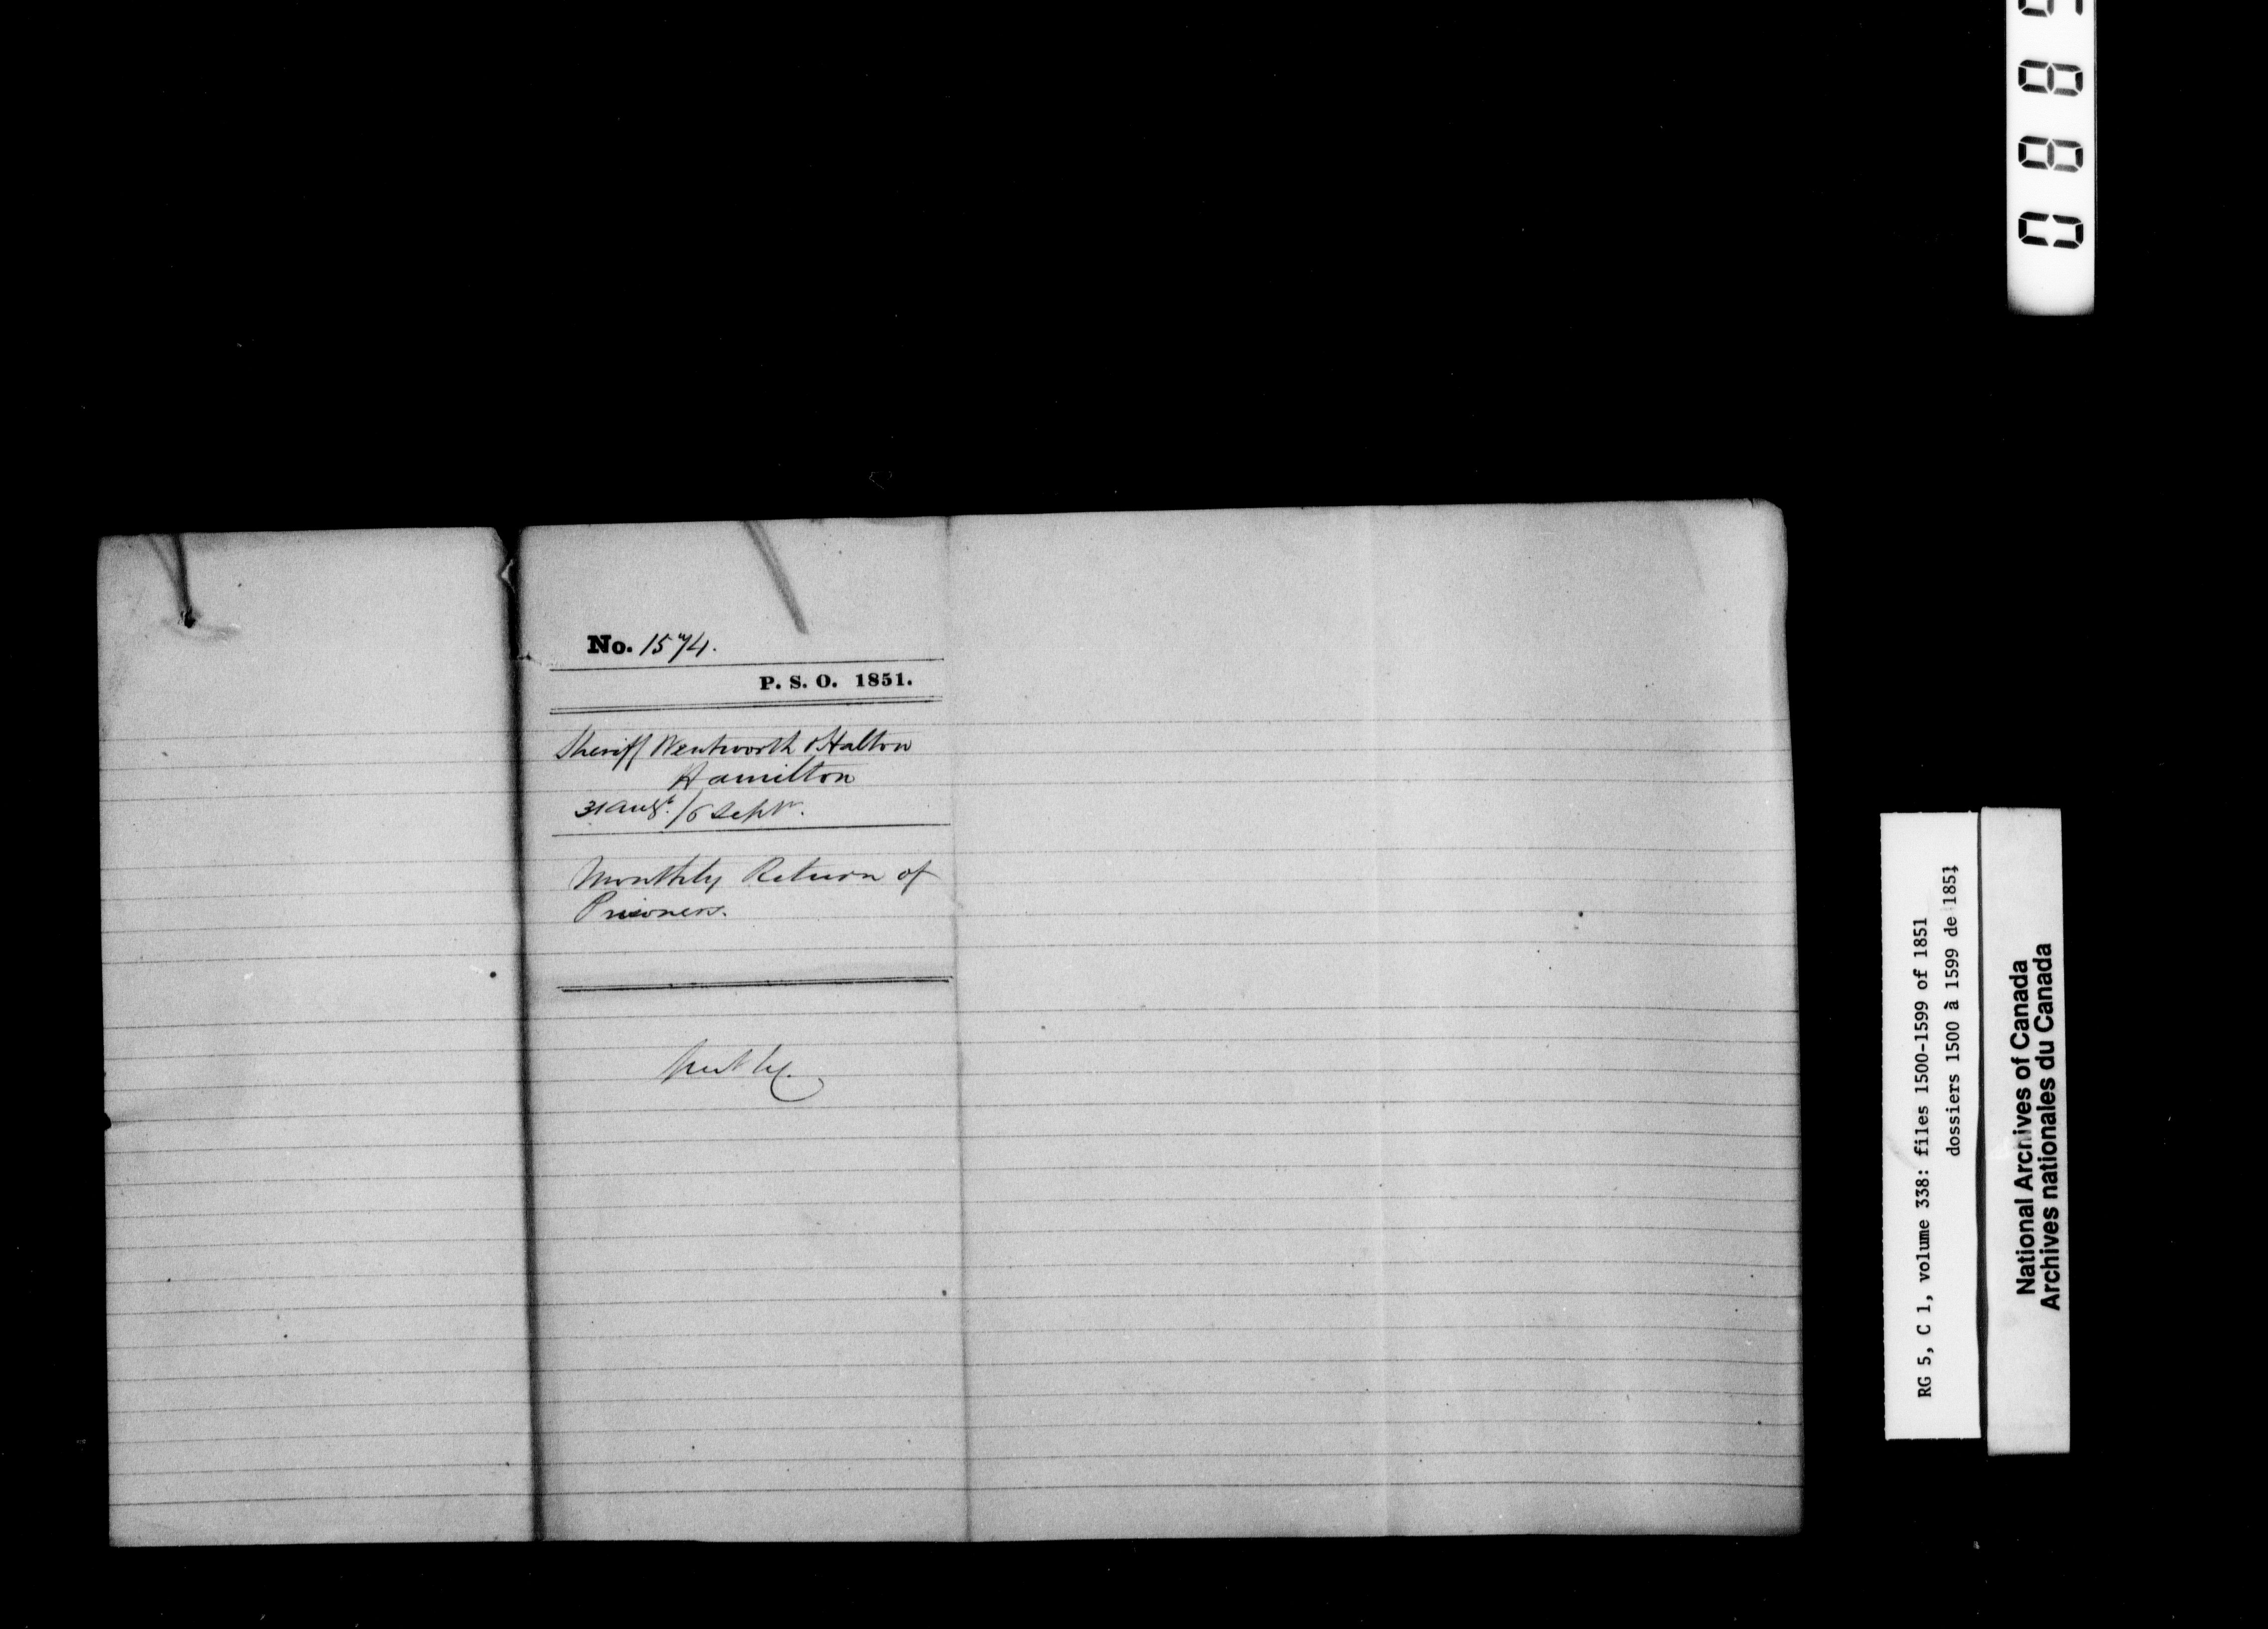 No. 1574.
P. S. O. 1851.
Sheriff Wentworth & Halton
Hamilton
31 Augt. / 6 Septr.
Monthly Return of
Prisoners.
RG 5, C 1, volume 338: files 1500-1599 of 1851
dossiers 1500 à 1599 de 1851
National Archives of Canada
Archives nationales du Canada
088